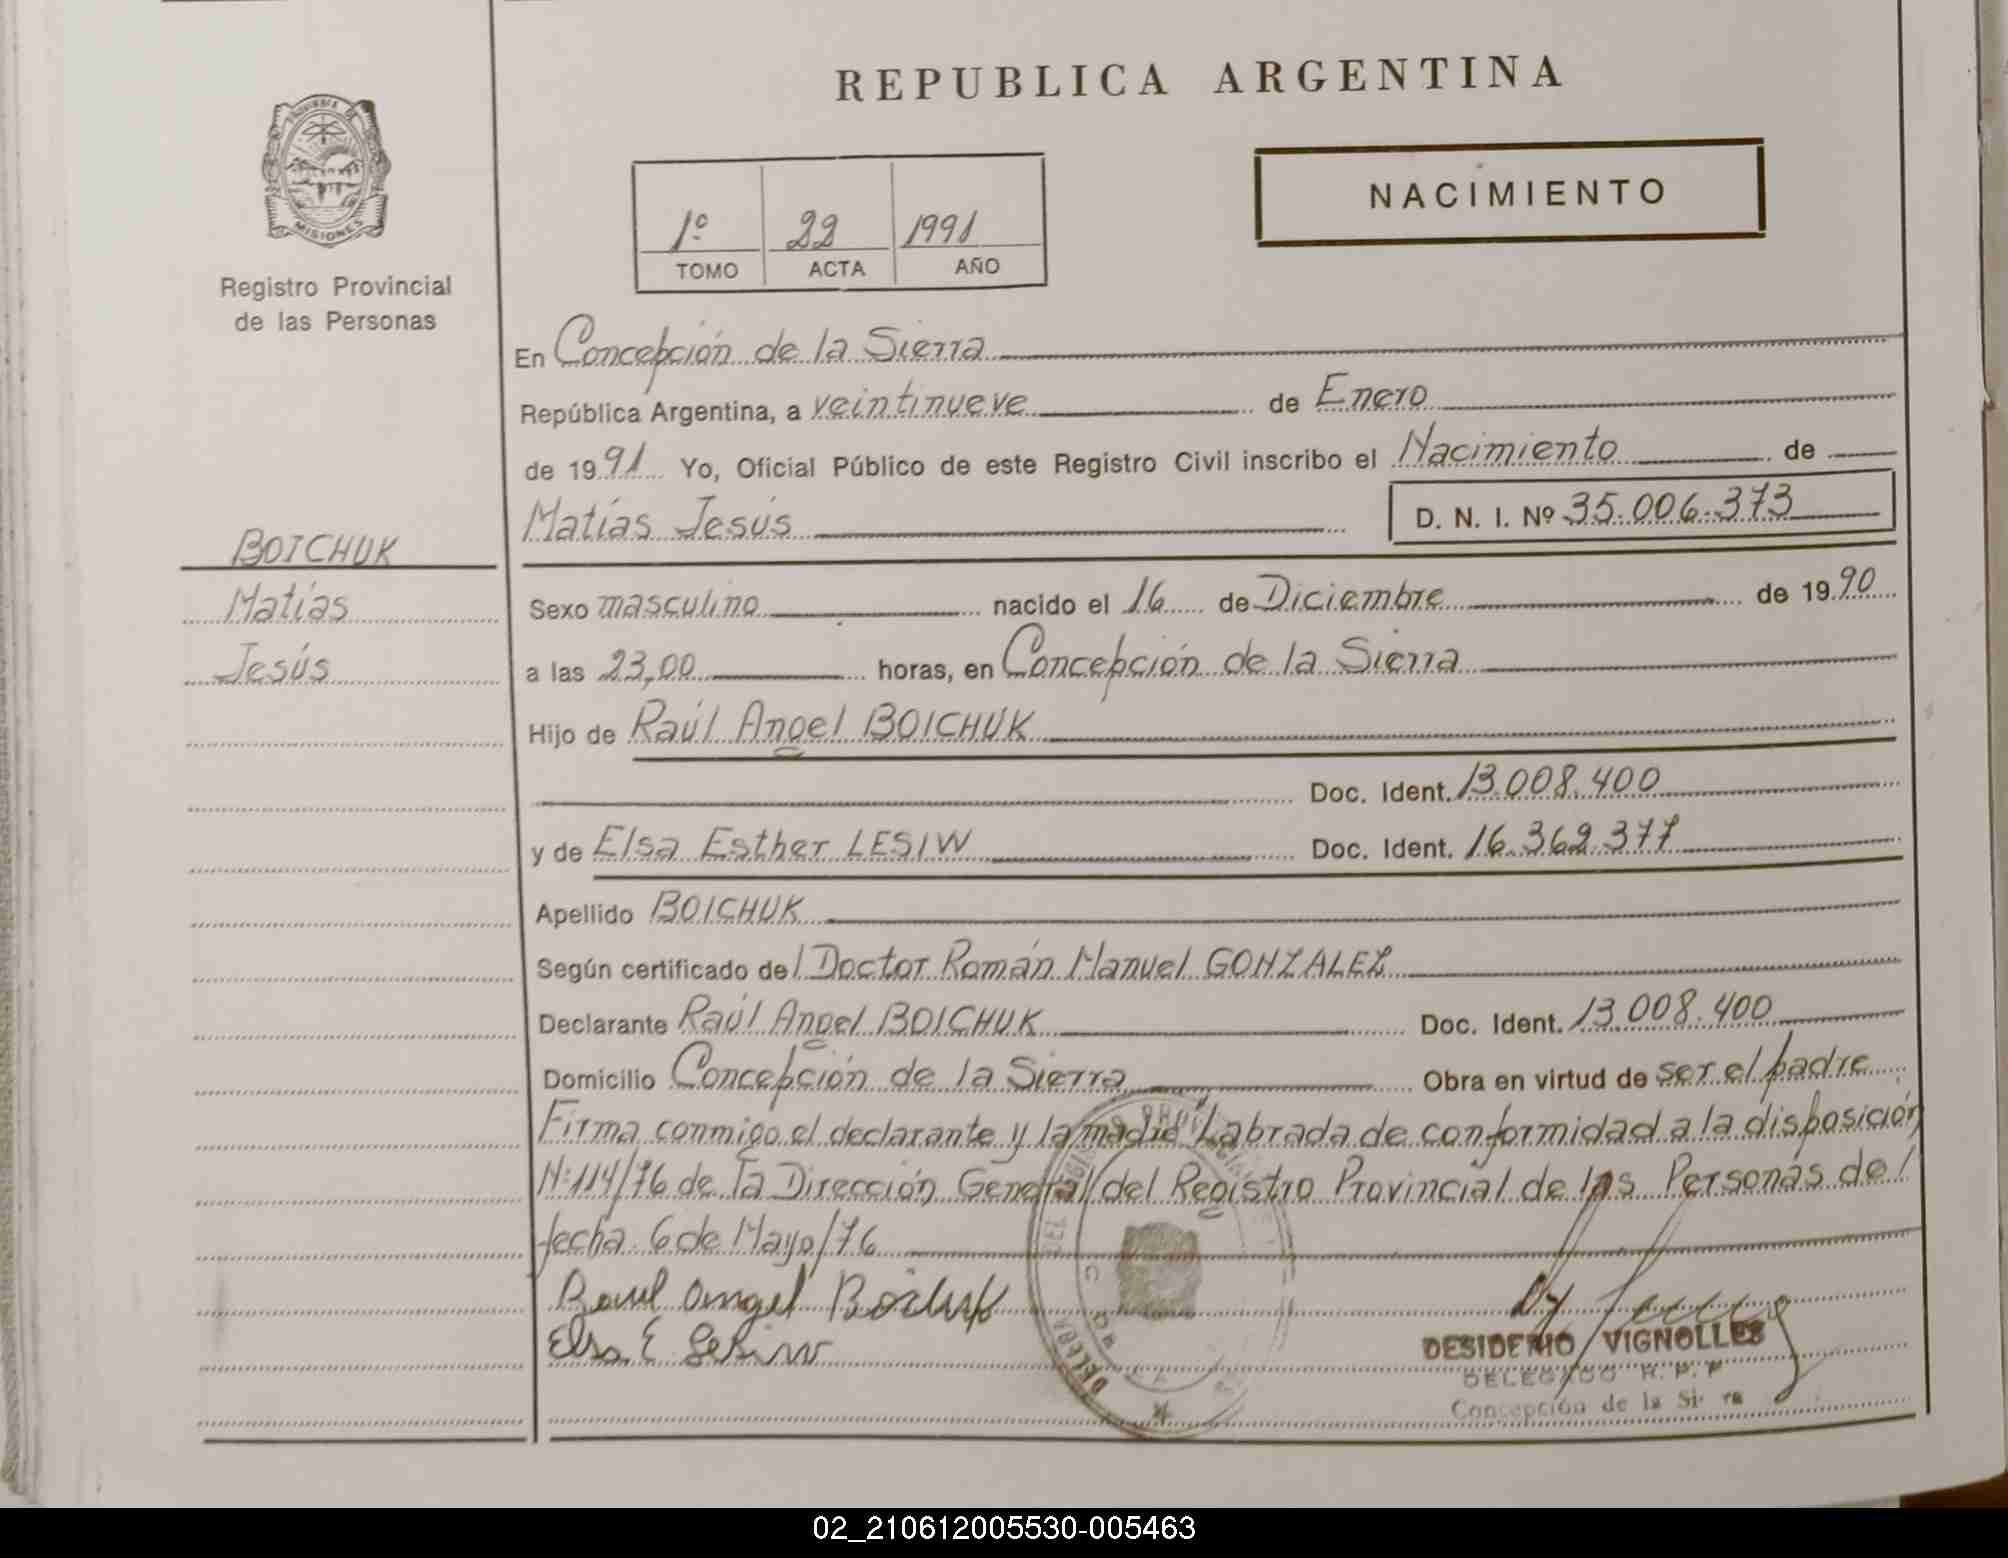 REPUBLICA ARGENTINA
PROVINCIA DE
MISIONES
Registro Provincial
de las Personas
NACIMIENTO
1º 22 1991
TOMO ACTA AÑO
En Concepción de la Sierra
República Argentina, a veintinueve de Enero
de 1991 Yo, Oficial Público de este Registro Civil inscribo el Nacimiento de
Matías Jesús D. N. I. Nº 35.006.373
BOICHUK
Matías
Jesús
Sexo masculino nacido el 16 de Diciembre de 1990
a las 23,00 horas, en Concepción de la Sierra
Hijo de Raúl Angel BOICHUK
Doc. Ident. 13.008.400
y de Elsa Esther LESIW Doc. Ident. 16.362.377
Apellido BOICHUK
Según certificado del Doctor Román Manuel GONZALEZ
Declarante Raúl Angel BOICHUK Doc. Ident. 13.008.400
Domicilio Concepción de la Sierra Obra en virtud de ser el padre
Firma conmigo el declarante y la madre Labrada de conformidad a la disposición
Nº 114/76 de la Dirección General del Registro Provincial de las Personas del
fecha 6 de Mayo/76
Raul Angel Boichuk
Elsa E Lesiw
DESIDERIO VIGNOLLES
DELEGADO R. P. P
Concepción de la Si rra
02_210612005530-005463